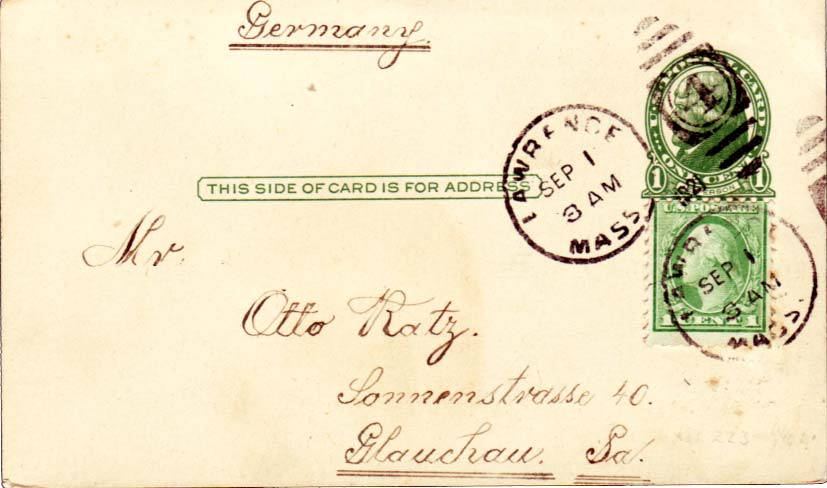 Germany.
U.S. POSTAL CARD
ONE CENT
1 1
JEFFERSON
THIS SIDE OF CARD IS FOR ADDRESS
LAWRENCE
SEP 1
8 AM
MASS.
4
U.S. POSTAGE
LAWRENCE
SEP 1
8 AM
MASS.
1 CENT 1
Mr.
Otto Katz.
Sonnenstrasse 40.
Glauchau. Sa.